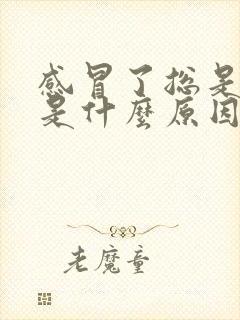 感冒了总是
是什麼原因
老魔童